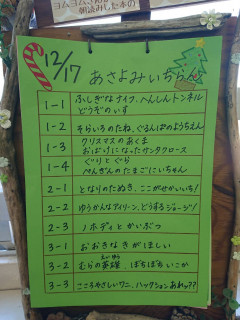 ヨムヨムさんが
朝読みした本の
12/17 あさよみいちらん
1-1 ふしぎなナイフ、へんしんトンネル
どうぞのいす
1-2 そらいろのたね、ぐるんぱのようちえん
1-3 クリスマスのあくま
おばけになったサンタクロース
1-4 ぐりとぐら
ぺんぎんのたまごにいちゃん
2-1 となりのたぬき、ここがせかいいち!
2-2 ゆうかんなアイリーン、どうするジョージ!
2-3 ノホディとかいぶつ
3-1 おおきなきがほしい
3-2 むらの英雄、ぼちぼちいこか
えいゆう
3-3 こころやさしいワニ、ハックションあれッ??